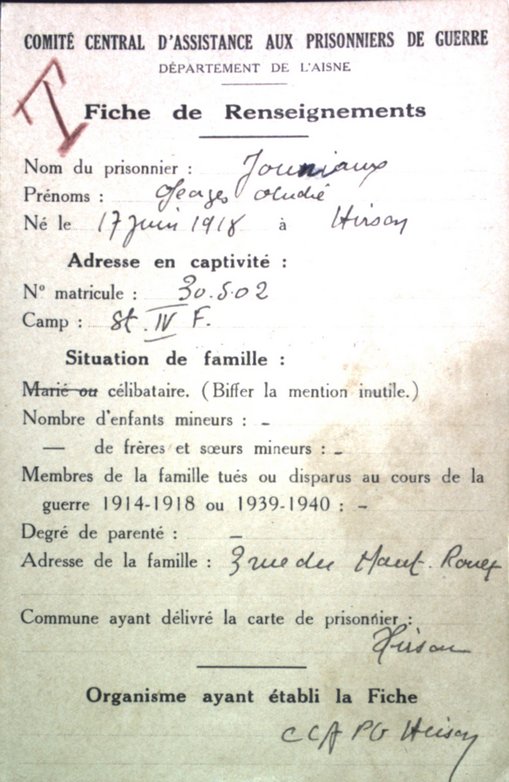 COMITÉ CENTRAL D'ASSISTANCE AUX PRISONNIERS DE GUERRE
DÉPARTEMENT DE L'AISNE
I
Fiche de Renseignements
Nom du prisonnier : Jouniaux
Prénoms : Georges André
Né le 17 juin 1918 à Hirson
Adresse en captivité :
N° matricule : 30.502
Camp : St. IV F.
Situation de famille :
Marié ou célibataire. (Biffer la mention inutile.)
Nombre d'enfants mineurs : -
— de frères et sœurs mineurs : -
Membres de la famille tués ou disparus au cours de la
guerre 1914-1918 ou 1939-1940 : -
Degré de parenté : -
Adresse de la famille : 3 rue du Haut
Commune ayant délivré la carte de prisonnier :
Hirson
Organisme ayant établi la Fiche
CCAPG Hirson